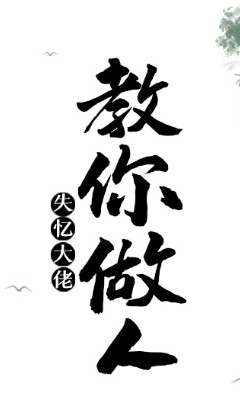 教你做人
失忆大佬